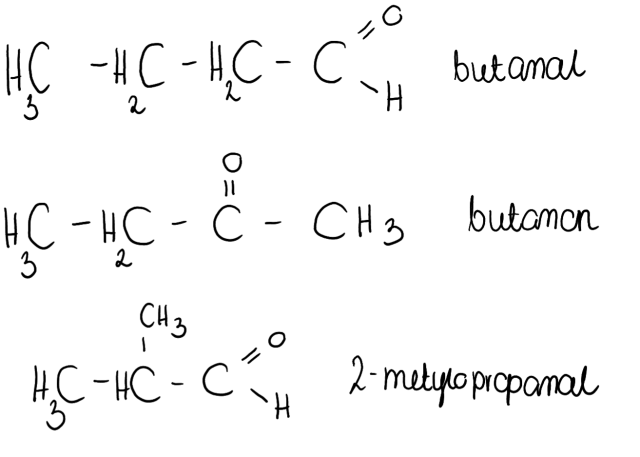 H₃C – H₂C – H₂C – C =O –H butanal
H₃C – H₂C – C (=O) – CH₃ butanon
H₃C – HC (CH₃) – C =O –H 2-metylopropanal